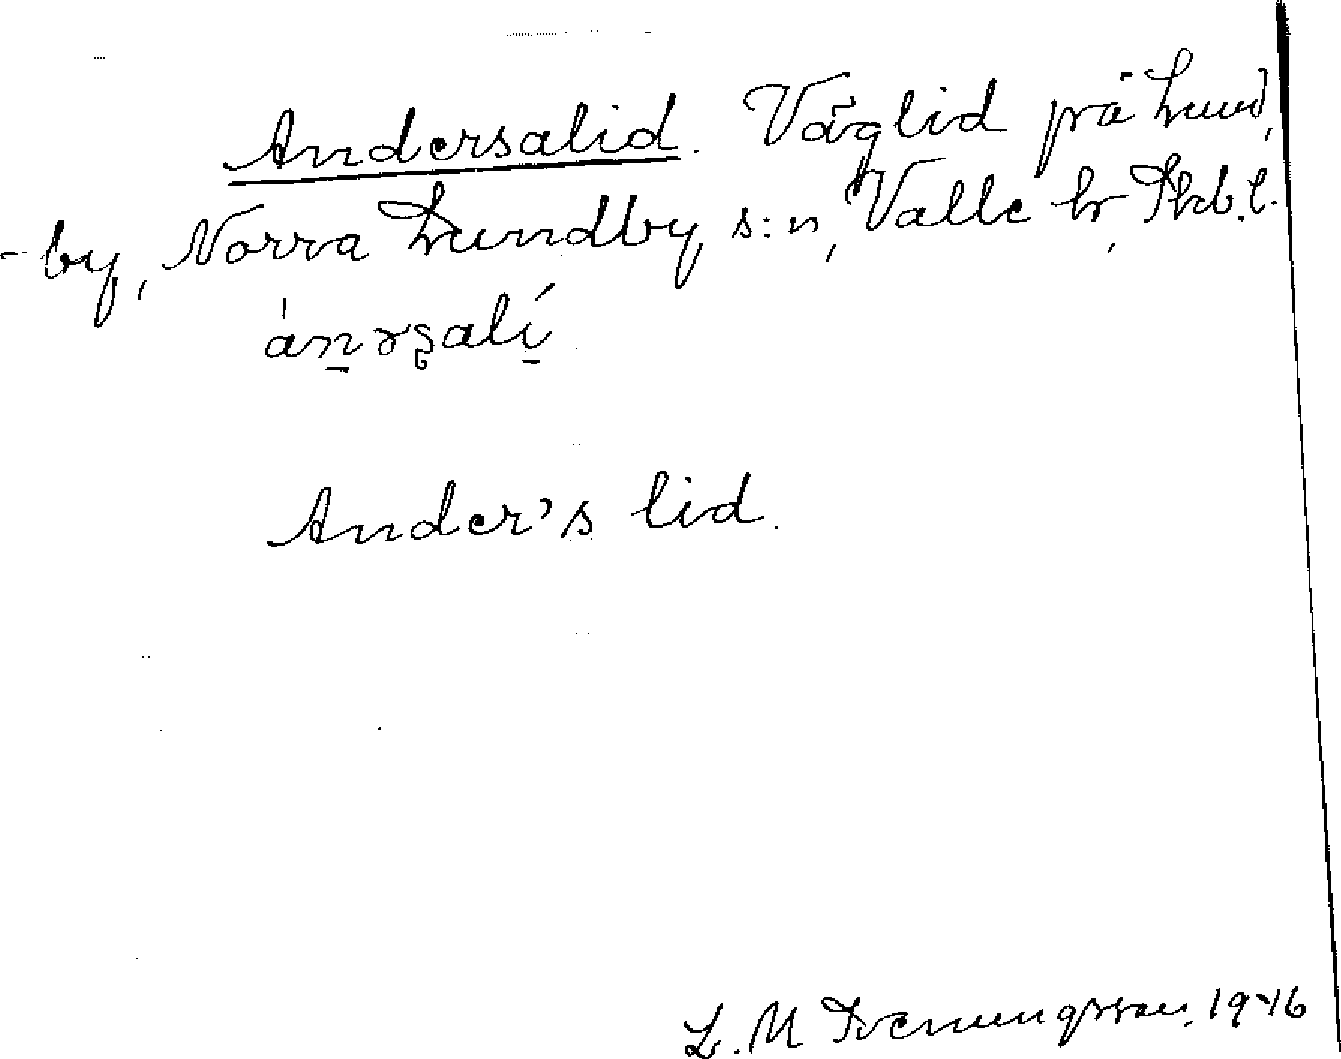 Andersalid. Väglid på Lund,
-by, Norra Lundby s:n, Valle hr, Skb.l.
Ander's lid.
L. M Svenungsson, 1946